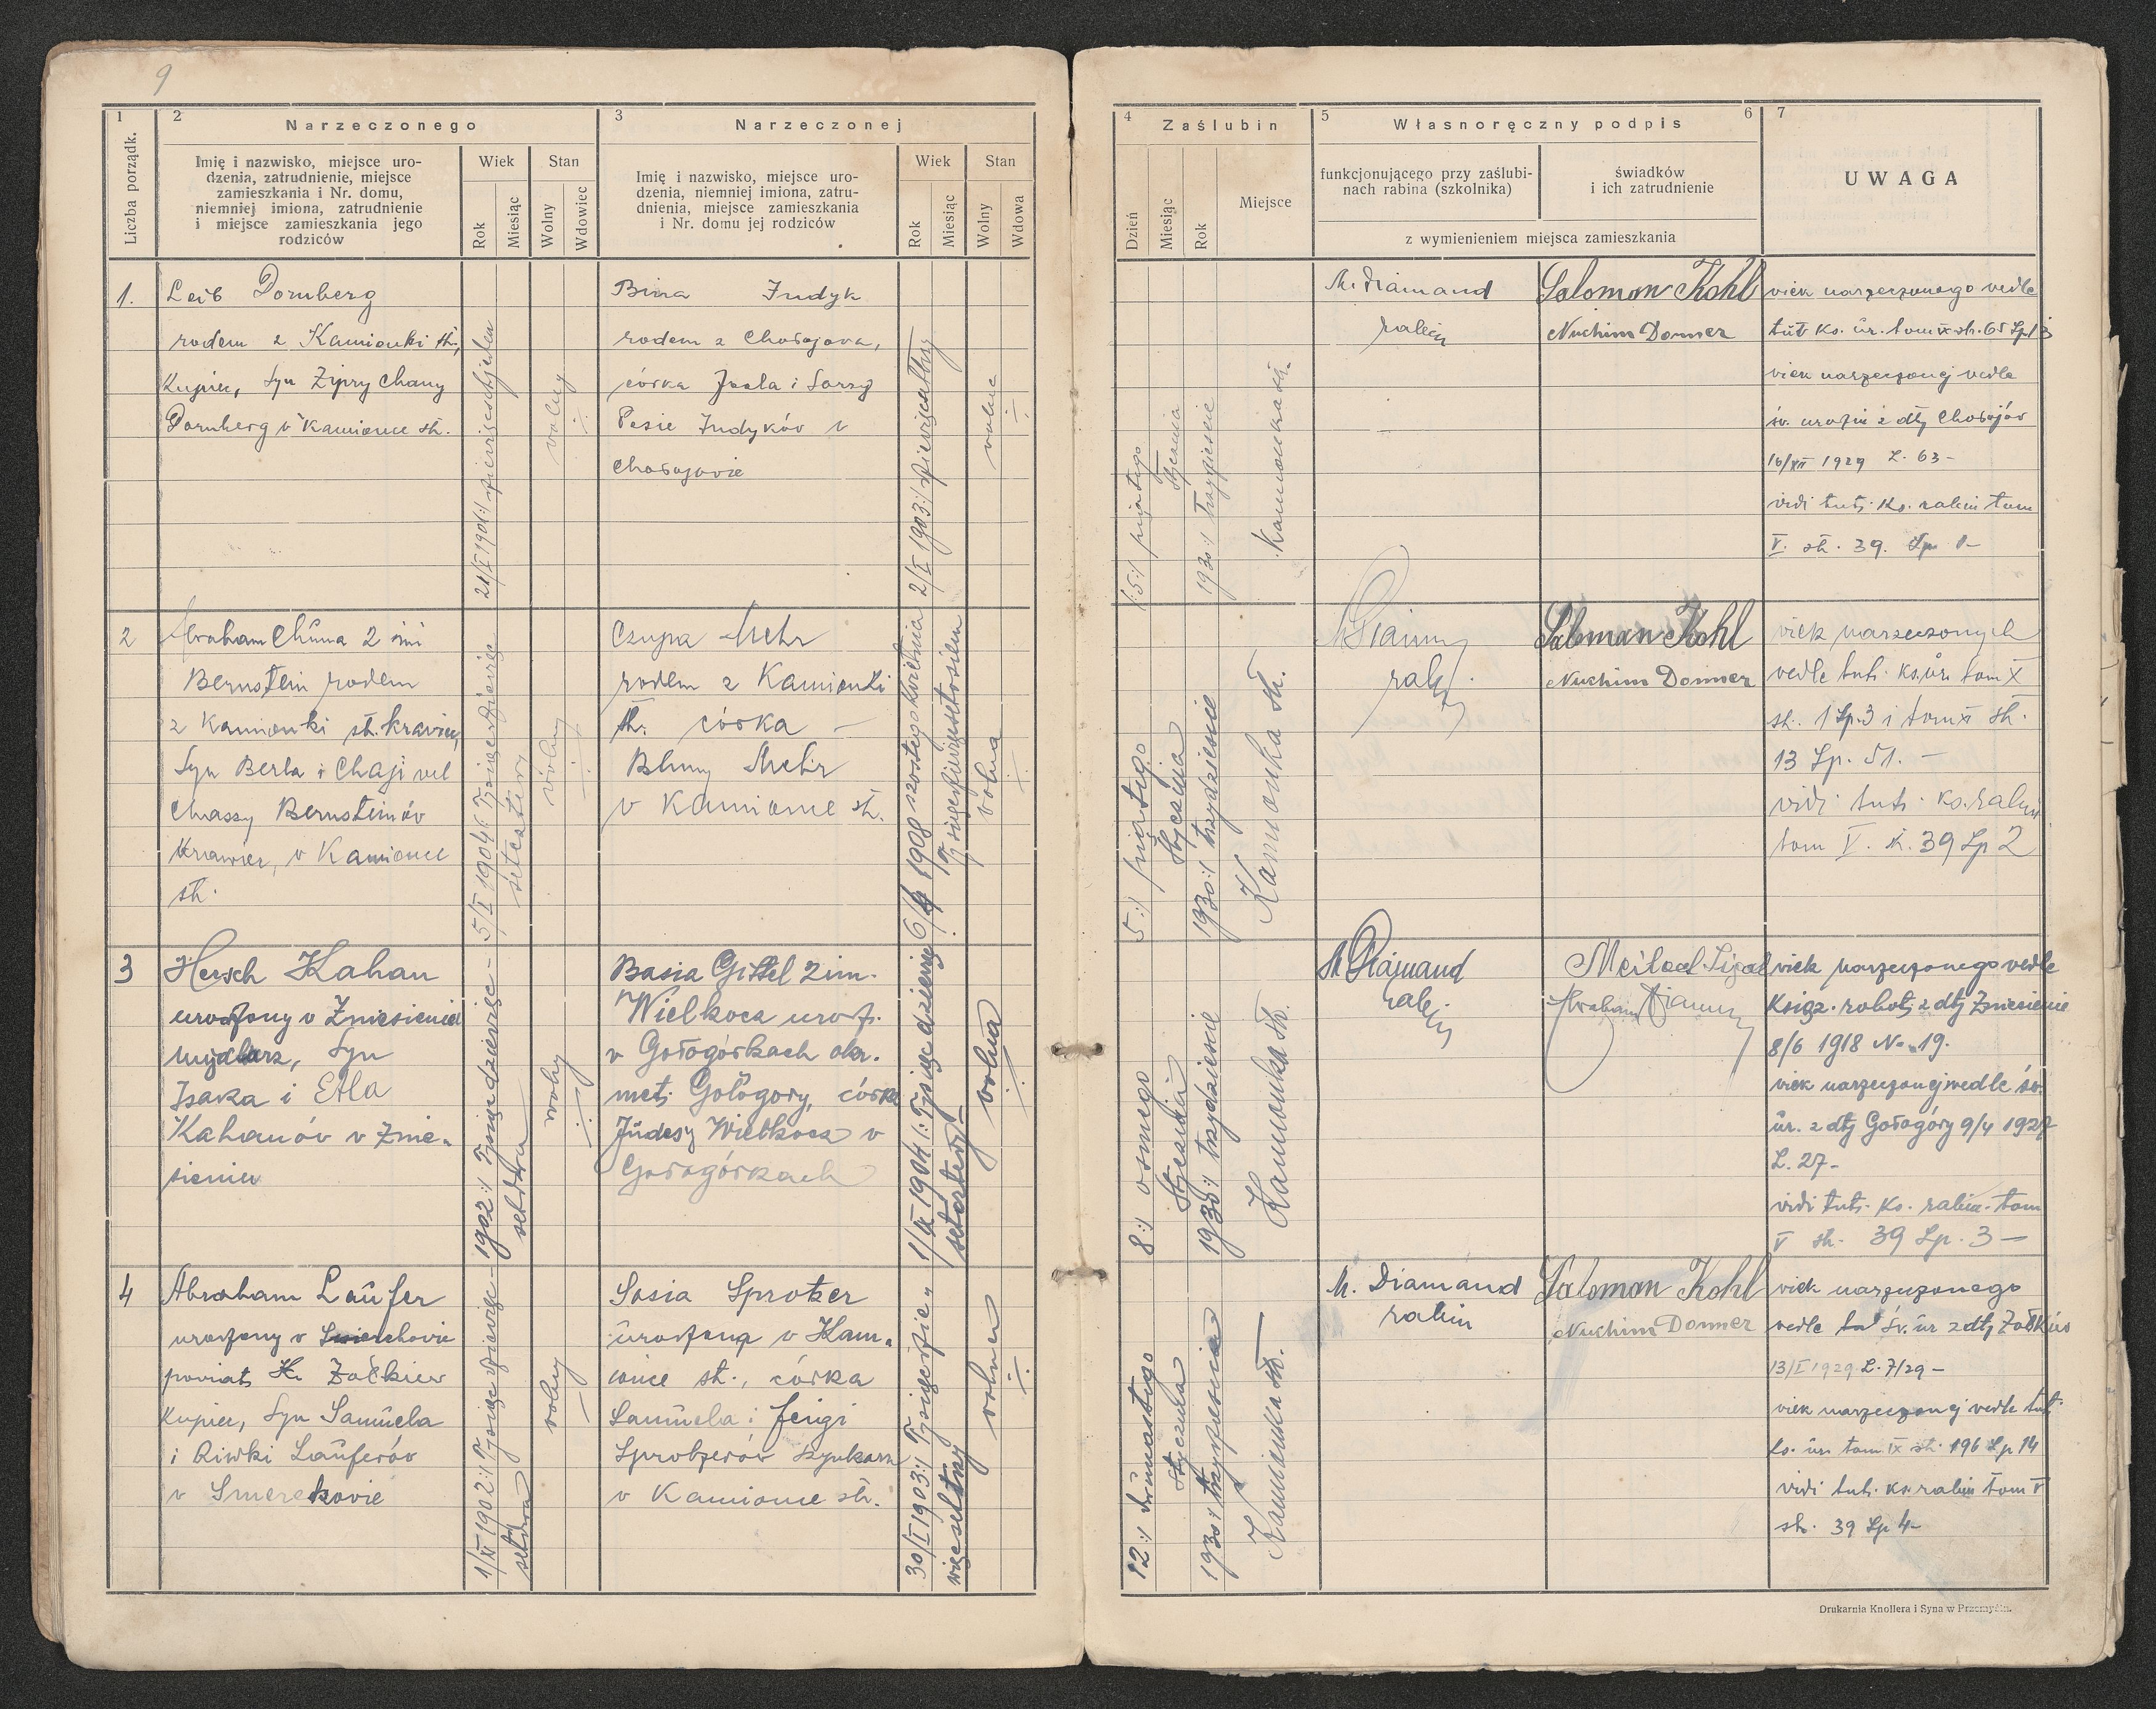 9
1
2
Narzeczonego
Imię i nazwisko, miejsce uro-
dzenia, zatrudnienie, miejsce
zamieszkania i Nr. domu,
niemniej imiona, zatrudnienie
i miejsce zamieszkania jego
rodziców
Liczba porządk.
Wiek
Rok
Miesiąc
Stan
Wolny
Wdowiec
3
Narzeczonej
Imię i nazwisko, miejsce uro-
dzenia, niemniej imiona, zatru-
dnienia, miejsce zamieszkania
i Nr. domu jej rodziców
Wiek
Rok
Miesiąc
Stan
Wolny
Wdowa
4
Zaślubin
Dzień
Miesiąc
Rok
Miejsce
5
Własnoręczny podpis
6
funkcjonującego przy zaślubi-
nach rabina (szkolnika)
świadków
i ich zatrudnienie
z wymienieniem miejsca zamieszkania
7
UWAGA
1.
Leib Dornberg
rodem z Kamionki st.,
Kupiec, syn Zipry Chany
Dornberg v Kamionce st.
wolny
Bina Indyk
rodem z Chołojova,
córka Joela i Sarry
Pesie Indyków v
Chołojovie
wolna
5:/ piątego
Stycznia
1930:/ trzydzieście
Kamionka st.
M. Diamand
rabin
Salomon Kohl
Nuchim Donner
viek narzeczonego vedle
tut. ks. ur. tom IX st. 65 Lp
viek narzeczonej vedle
św. urodzin z dtj Chołojów
16/XII 1929 L. 63-
vidi tut. ks. rabin tom
V. st. 39. Lp 1-
2
Abraham Chuna 2 imi
Bernstein rodem
z Kamionki st. kraviec,
syn Berla i Chaji vel
Chassy Bernsteinów
krawiec, v Kamionce
st.
5/I 1904
wolny
Czypra Mehr
rodem z Kamionki
st. córka -
Blumy Mehr
v Kamionce st.
1908
wolna
5:/ piątego
Stycznia
1930:/ trzydzieście
Kamionka st.
rabin
Salomon Kohl
Nuchim Donner
viek narzeczonych
vedle tut. ks. ur. tom X
st. 1 Lp. 3 i tom XI st.
13 Lp. 51. -
vidi tut. ks. rabin
tom V. st. 39 Lp 2
3
Hersch Kahan
urodzony v Zniesieniu
mydlarz, syn
Isaka i Etla
Kahanów v Znie-
sieniu
1902:/ Tysiąc dziewięc-
setdrug
wolny
Basia Gittel 2 im.
Wielkocz urodz.
v Gołogórkach okr.
met. Gołogory, córka
Judesy Wielkocz v
Gołogórkach
wolna
8:/ osmego
Stycznia
1930:/ trzydzieście
Kamionka st.
M Diamand
rabin
viek narzeczonego vedle
Książ. robot. z dtj Zniesienie
8/6 1918 No 19.
viek narzeczonej vedle św.
ur. z dtj Gołogóry 9/4 1927
L. 27-
vidi tut. ks. rabin. tom
V st. 39 Lp. 3 -
4
Abraham Laufer
urodzony v
poviat Żółkiew
kupiec, syn Samuela
i Riwki Lauferów
v Smerekovie
1/XI 1902:/ Tysiąc dziewięc-
wolny
Sosia Sprotzer
urodzona v Kam-
ionce st., córka
Samuela i Feigi
Sprotzerów szynkarz
v Kamionce st.
30/I 1903:/ Tysiąc dzie-
więcsettrzy
wolna
12:/ dwunastego
Stycznia
1930:/
Kamionka st.
M. Diamand
rabin
Salomon Kohl
Nuchim Donner
viek narzeczonego
vedle św. ur z dtj Żółkiew
13/I 1929 L. 7/29-
viek narzeczonej vedle tut.
ks. ur. tom IX st. 196 Lp 14
vidi tut. ks. rabin tom V
st. 39 Lp 4-
Drukarnia Knollera i Syna w Przemyślu.